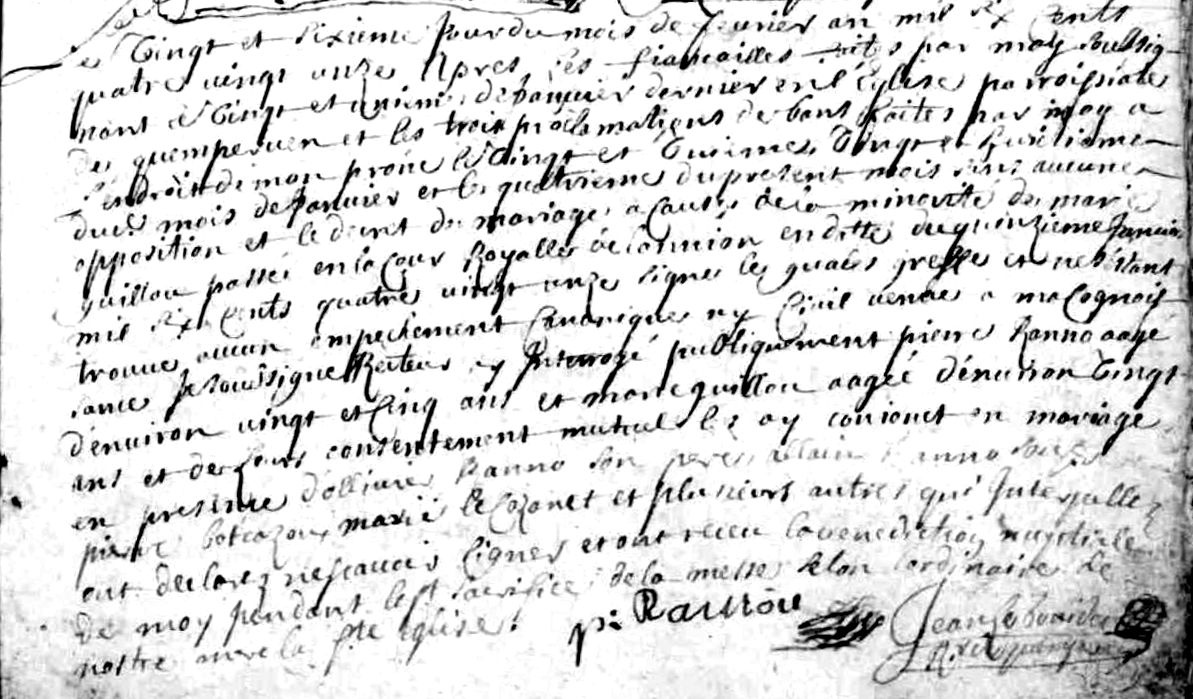 Vingt et sixieme jour du mois de feurier an mil six cents
quatre uingt unze apres les fiancailles faites par moy soussig-
nant le Vingt et unieme de januier dernier en l'Eglise parroissiale
de quemperuen et les trois proclamations de bans faites par moy a
l'endroit de mon prone les Vingt et Vingt et huitieme
dudit mois de januier et le quatrieme du present mois sans aucune
opposition et le decret de mariage a cause de la minorité de marie
guillou passé en la Cour Royalle de lannion en datte du quinzieme januier
mil six cents quatre uingt unze signe greffe et nestant
trouué aucun empechement Canonique ny Ciuil uenue a ma Cognois
sance je soussigne Recteur ay Interrogé publiquement pierre Ranno aagé
d'enuiron uingt et Cinq ans et marie guillou aagée d'enuiron Vingt
ans et de leurs consentement mutuel les ay conionct en mariage
en presence d'olliuier Ranno son pere allain Ranno
pierre marie le Cozanet et plusieurs autres qui Interpellez
ont declarez ne scauoir Signer et ont receu la benediction nuptialle
de moy pendant le st sacrifice de la messe selon l'ordinaire de
nostre mere la ste eglise.
Jean